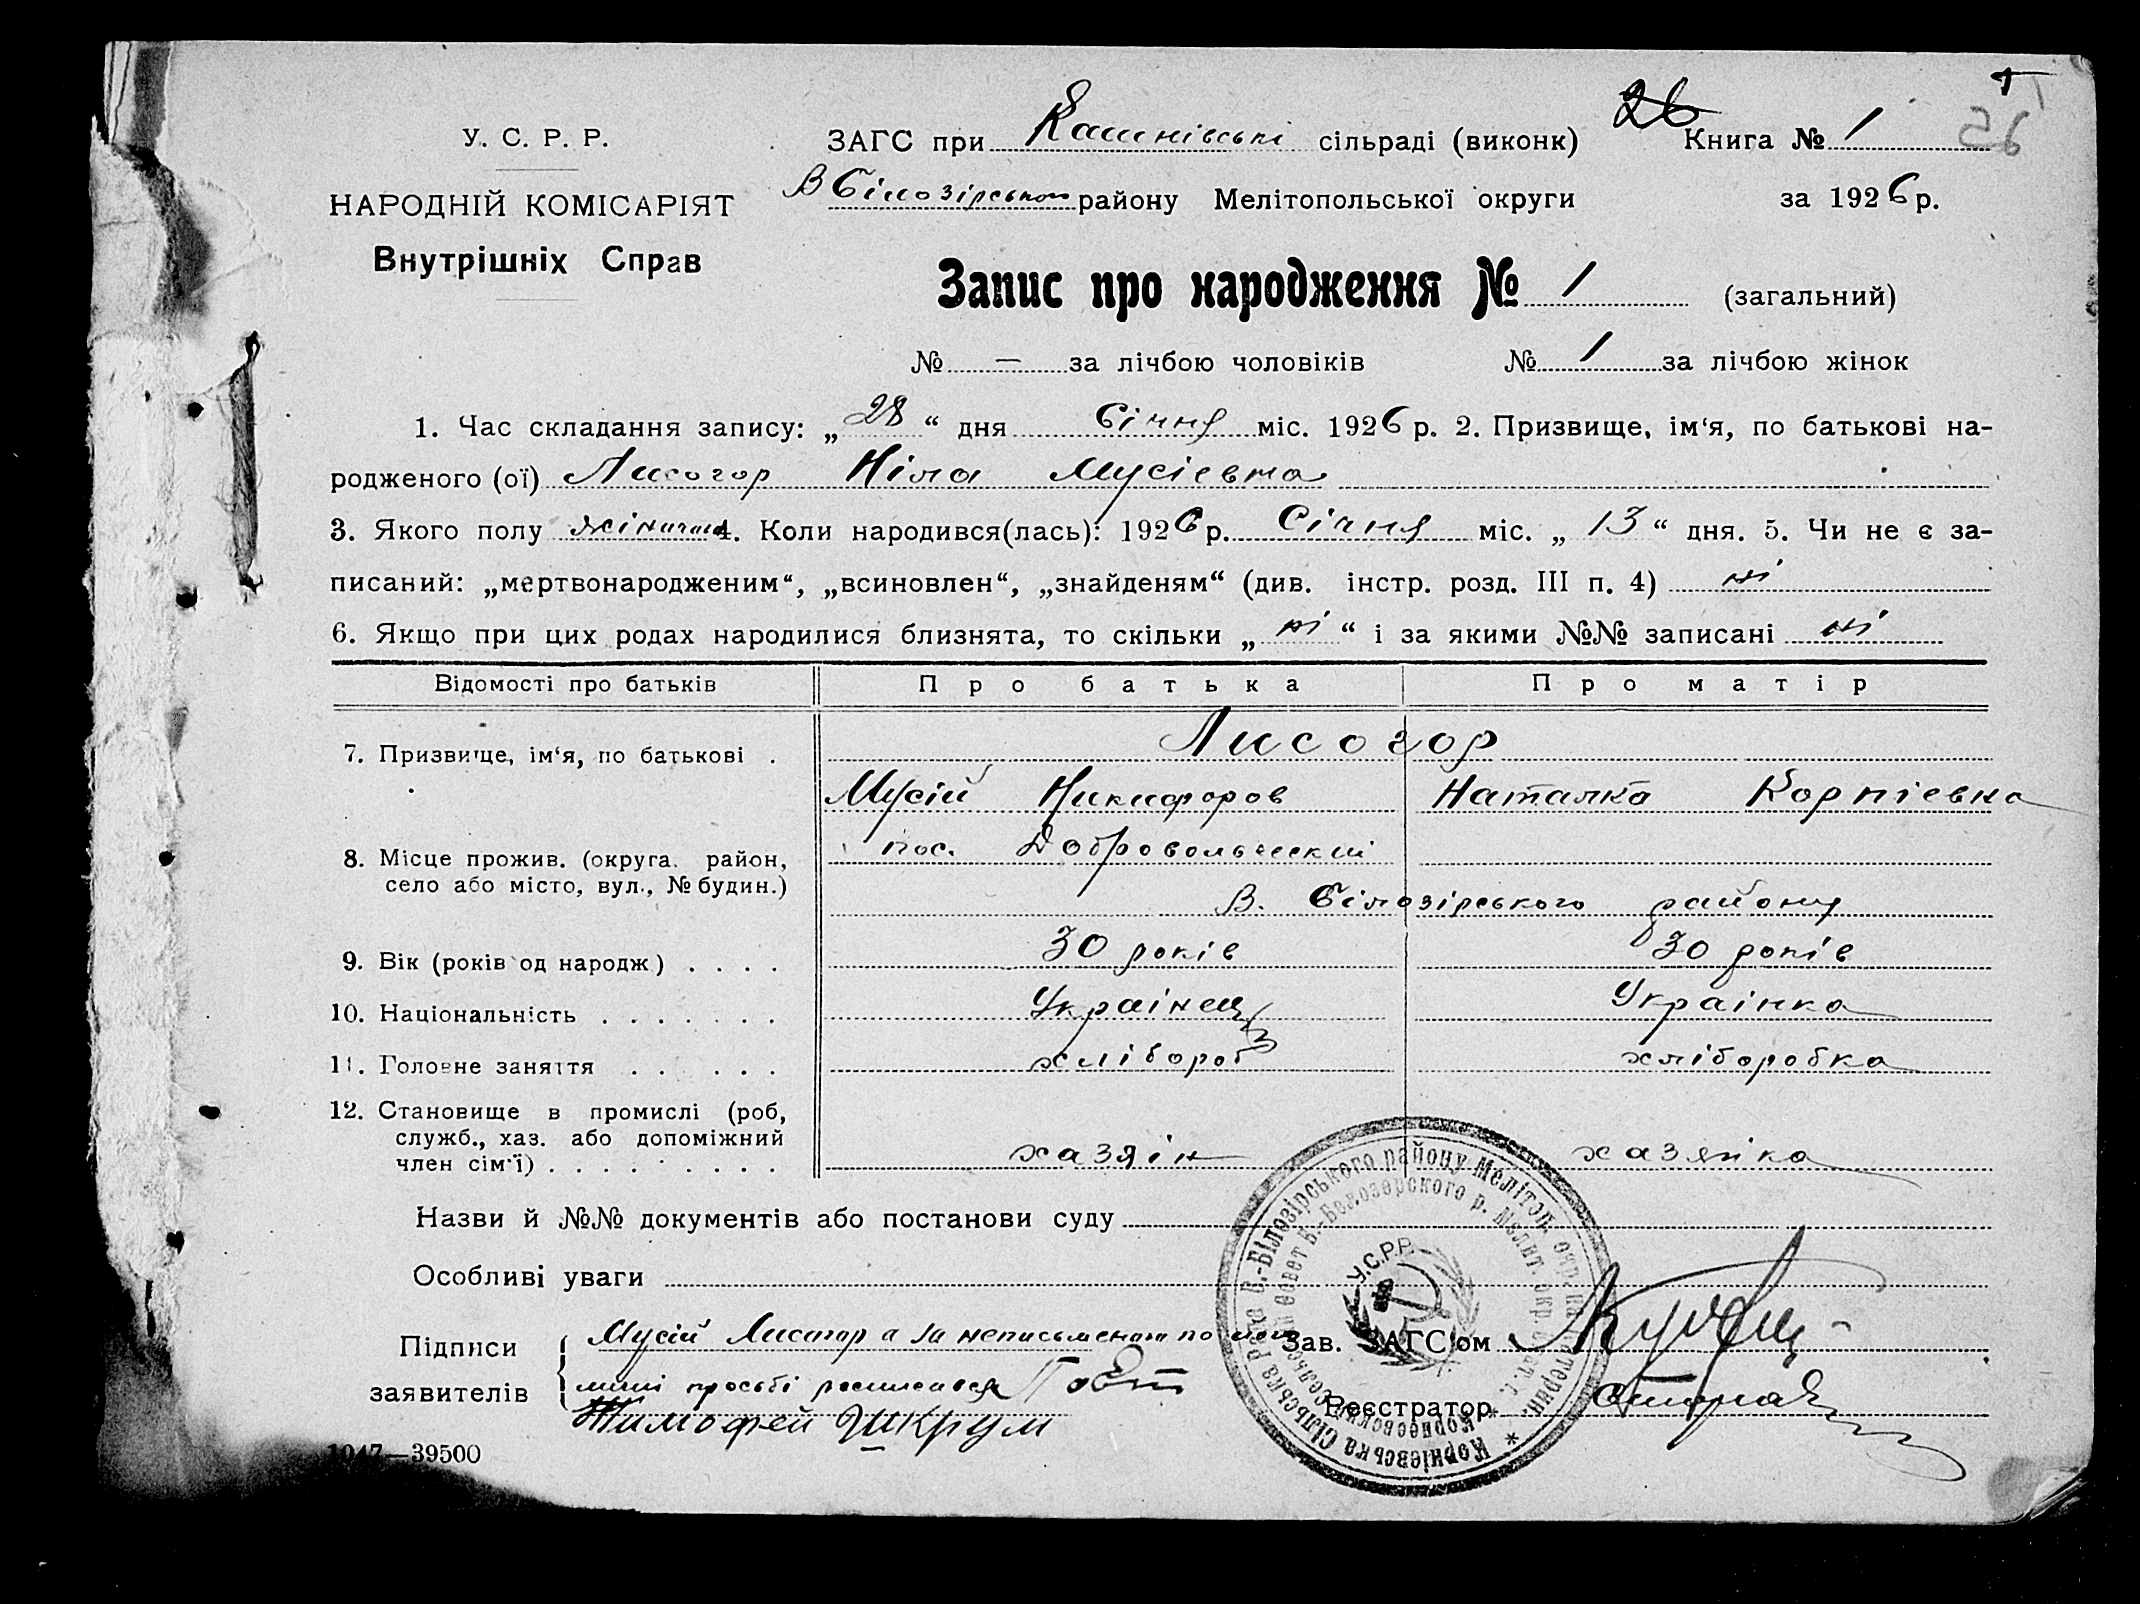 У. С. Р. Р.
НАРОДНІЙ КОМІСАРІЯТ
Внутрішніх Справ
ЗАГС при сільраді (виконк) 26 Книга № 1
В Білозірського району Мелітопольської округи за 1926 р.
Запис про народження № 1 (загальний)
№ — за лічбою чоловіків № 1 за лічбою жінок
1. Час складання запису: „28“ дня Січня міс. 1926 р. 2. Призвище, ім‘я, по батькові на-
родженого (ої) Лисогор Ніла Мусіевна
3. Якого полу 4. Коли народився(лась): 1926 р. Січня міс. „13“ дня. 5. Чи не є за-
писаний: „мертвонародженим“, „всиновлен“, „знайденям“ (див. інстр. розд. III п. 4) ні
6. Якщо при цих родах народилися близнята, то скільки „ні“ і за якими №№ записані ні
Відомості про батьків Про батька Про матір
7. Призвище, ім‘я, по батькові . Лисогор
Мусій Никифоров Наталка Корніевна
8. Місце прожив. (округа, район, село або місто, вул., № будин.) пос. Добровольческий
В. Білозірського району
9. Вік (років од народж) . . . . 30 років 30 років
10. Національність . . . . . . . Украінец Украінка
11. Головне заняття . . . . . . хлібороб хліборобка
12. Становище в промислі (роб, служб., хаз. або допоміжний член сім‘ї) . . . . . . . . . хазяін хазяіка
Назви й №№ документів або постанови суду
Особливі уваги
Підписи заявителів
Мусій Лисогор а за неписьменого по
просьбі росписався
Тимофей Шкрум
Зав. ЗАГС‘ом
Реєстратор
У.С.Р.Р.
Корніевська Сільська Рада В.-Білозірського району Мелітоп. окр.
1047—39500